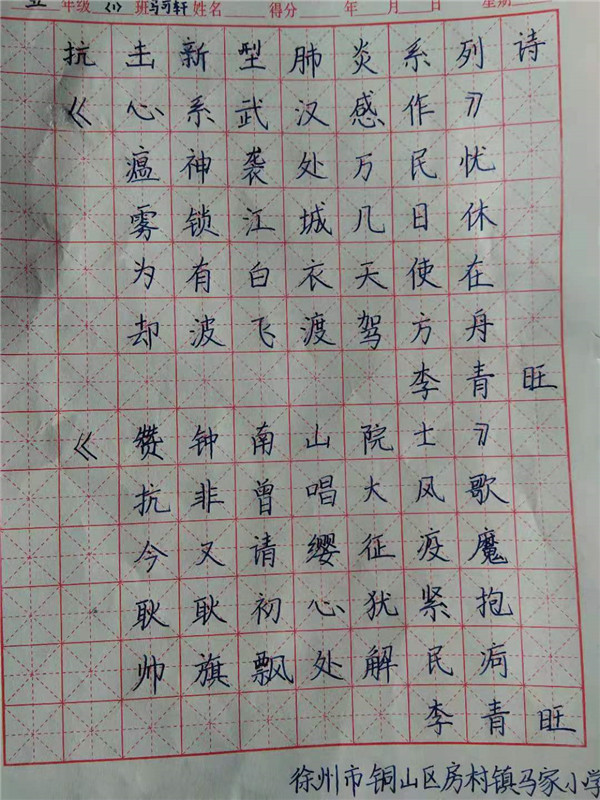 五年级(1)班马可轩姓名 得分 年 月 日 星期
抗击新型肺炎系列诗
《心系武汉感作》
瘟神袭处万民忧
雾锁江城几日休
为有白衣天使在
却波飞渡驾方舟
李青旺
《赞钟南山院士》
抗非曾唱大风歌
今又请缨征疫魔
耿耿初心犹紧抱
帅旗飘处解民疴
李青旺
徐州市铜山区房村镇马家小学